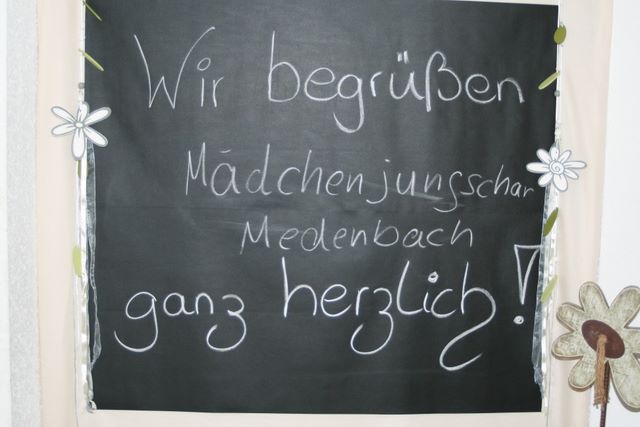 Wir begrüßen
Mädchenjungschar
Medenbach
ganz herzlich!